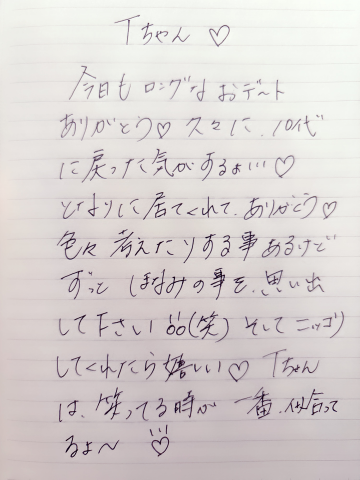 Tちゃん ♡
今日も ロングな おデート
ありがとう♡ 久々に、10代
に戻った気がするよ!!! ♡
となりに居てくれて、ありがとう♡
色々 考えたりする事あるけど
ずっと ほなみの事を、思い出
して下さい (笑) そして ニッコリ
してくれたら嬉しい♡ Tちゃん
は、笑ってる時が 一番、似合って
るよ〜 ♡